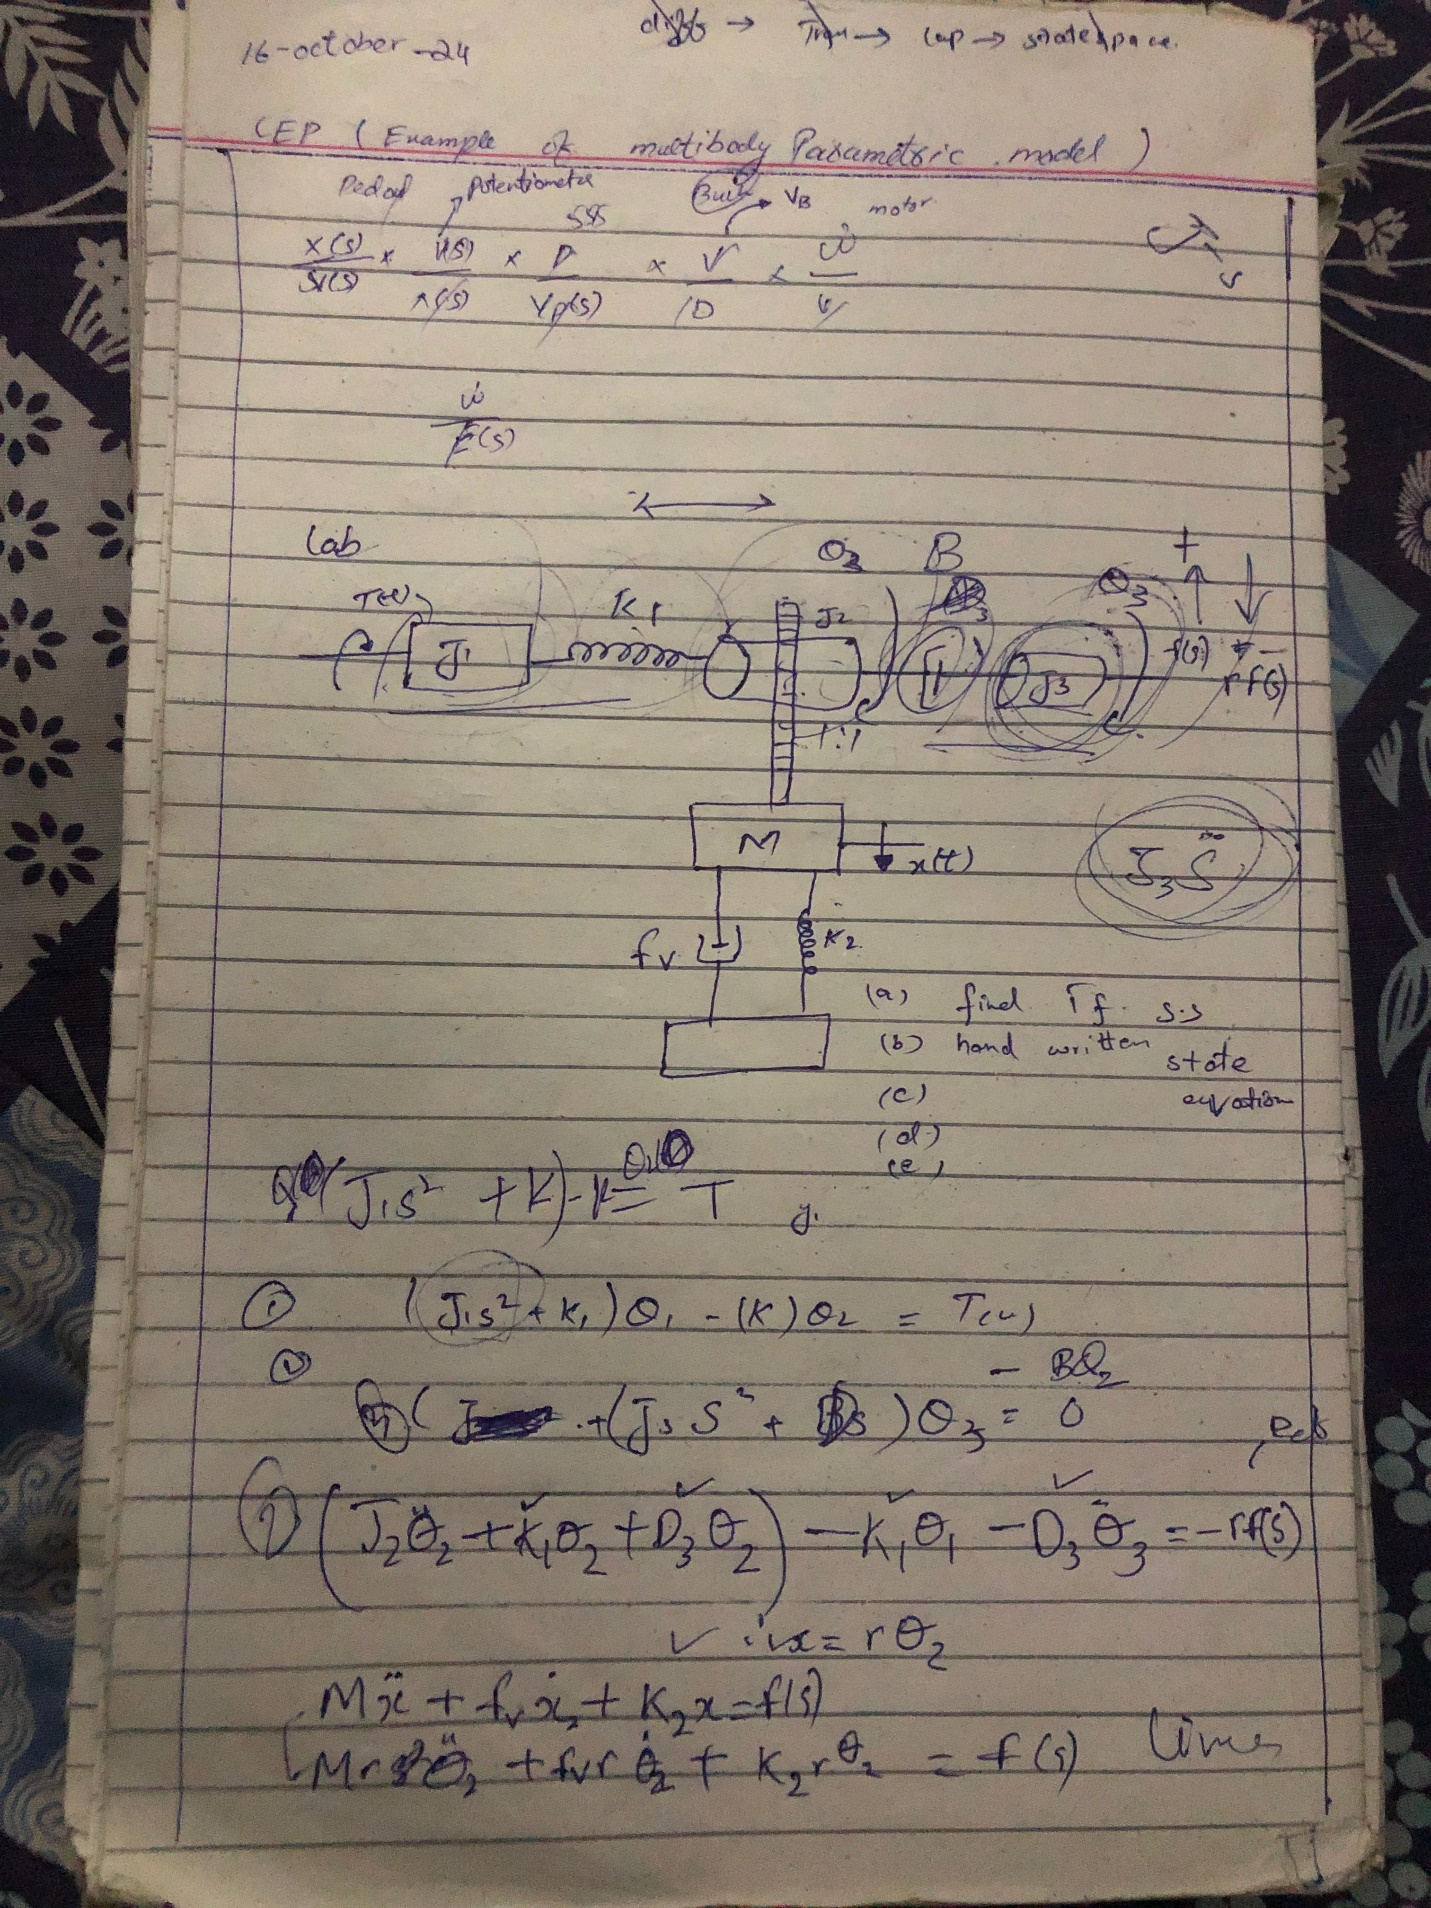 16-october-24
diff → Tran → Lap → statespace.
CEP ( Example of multibody Parametric model )
Potentiometer VB motor
X(s) × × D × V × ω̇
Vp(s) D
ω̇
F(s)
Lab
T(t) K1 θ2 B θ3 + -
J1 J2 J3 f(s) rf(s)
M x(t)
J3S̈
fv K2
(a) find Tf. s.s
(b) hand written state
equation
(c)
(d)
(e)
(J1s² + K) - K = T y.
① (J1s² + K1)θ1 - (K)θ2 = T(s)
② - Bθ2
+(J3S² + Bs)θ3 = 0
(J2θ̈2 + K1θ2 + D3θ̇2) - K1θ1 - D3θ̇3 = -rf(s)
x = rθ2
Mẍ + fvẋ + K2x = f(s)
Mrθ̈2 + fvrθ̇2 + K2rθ2 = f(s)